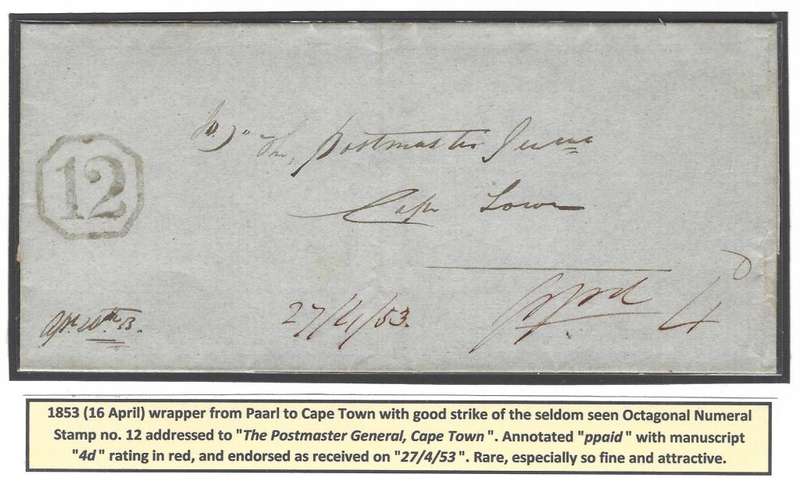 The postmaster
Cape Town
12
27/4/53.
ppd 4
1853 (16 April) wrapper from Paarl to Cape Town with good strike of the seldom seen Octagonal Numeral
Stamp no. 12 addressed to "The Postmaster General, Cape Town". Annotated "ppaid" with manuscript
"4d" rating in red, and endorsed as received on "27/4/53". Rare, especially so fine and attractive.